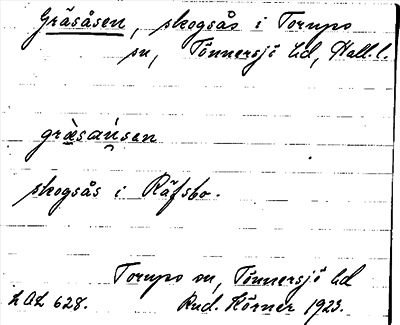 Gräsåsen, skogsås i Torups
sn, Tönnersjö hd, Hall.l.
græ̀saúsen
skogsås i Räfsbo.
Torups sn, Tönnersjö hd
LAL 628. Rud. Körner 1923.